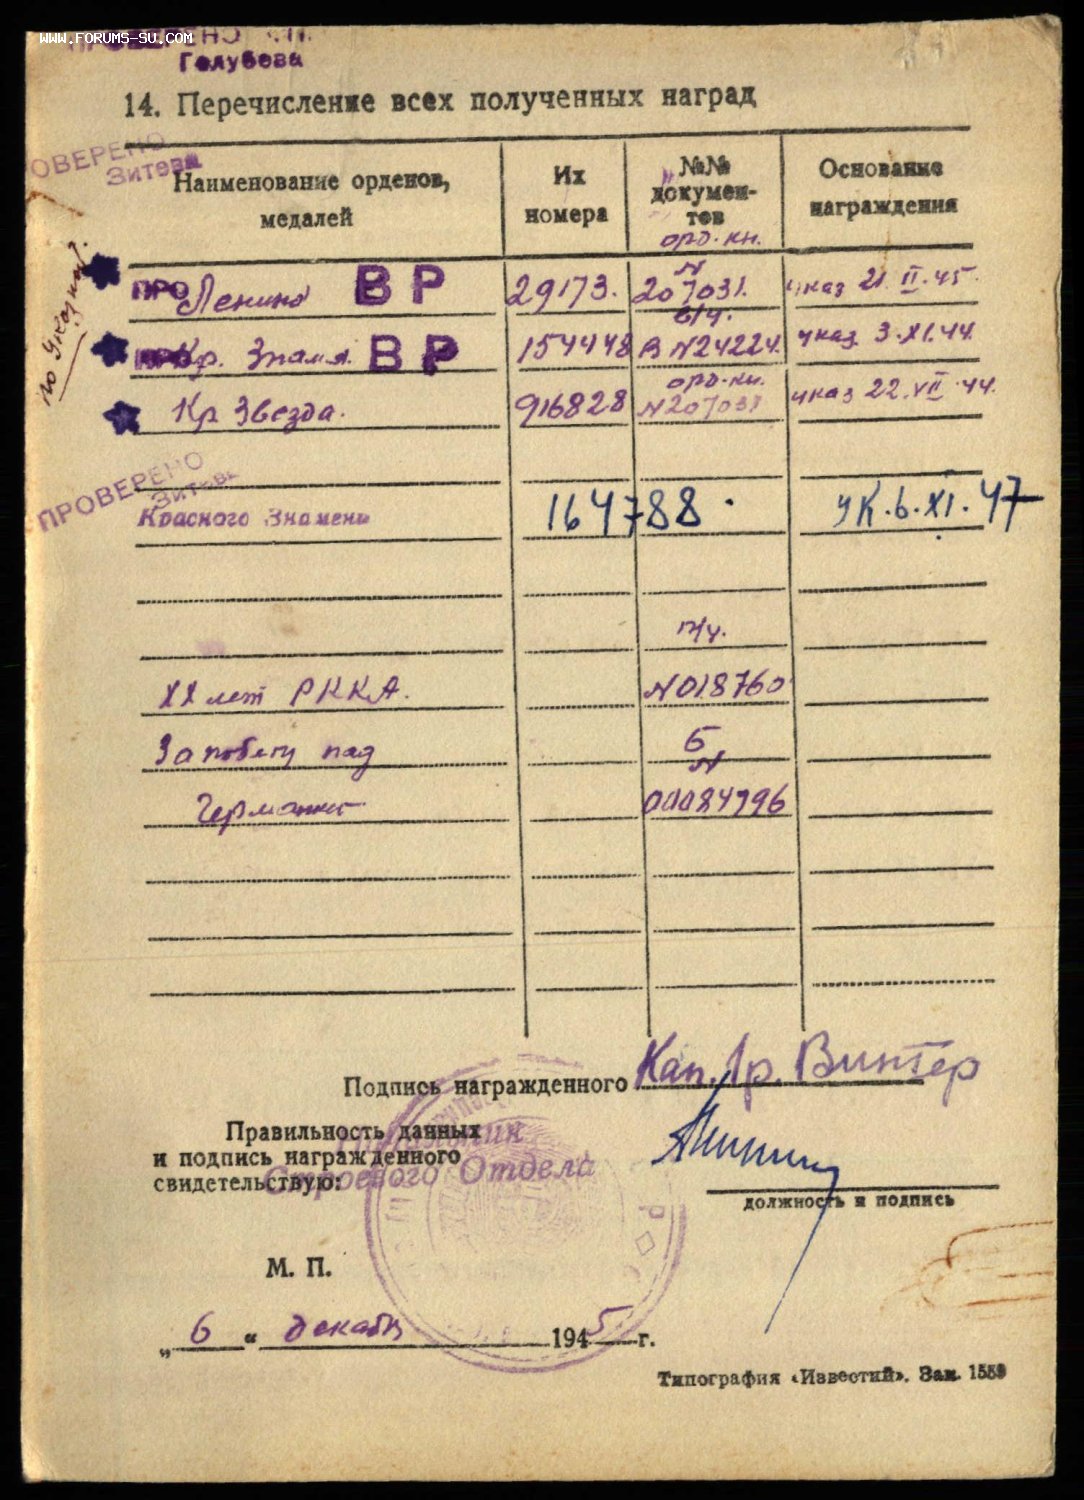 www.forums-su.com
ПРОВЕРЕНО
Голубева
14. Перечисление всех полученных наград
ОВЕРЕНО
Зитева
Наименование орденов,
медалей
Их
номера
№№
докумен-
тов
Основание
награждения
по указу
орд. кн.
ПРО Ленина ВР 29173. N 207031. указ 21.II.45.
в/ч.
Кр. Знамя. ВР 154448 В N24224. указ 3.XI.44.
орд. кн.
Кр Звезда. 916828 N207031 указ 22.VII.44.
ПРОВЕРЕНО
Зитева
Красного Знамени 164788. УК.6.XI.47
п/у.
XX лет РККА. N018760
За победу над Б
N
Германией 00084796
Подпись награжденного Кап. Iр. Винтер
Правильность данных
и подпись награжденного
свидетельствую:
Строевого Отдела
должность и подпись
М. П.
„ 6 “ декабря 1945 г.
Типография «Известий». Зак. 1559